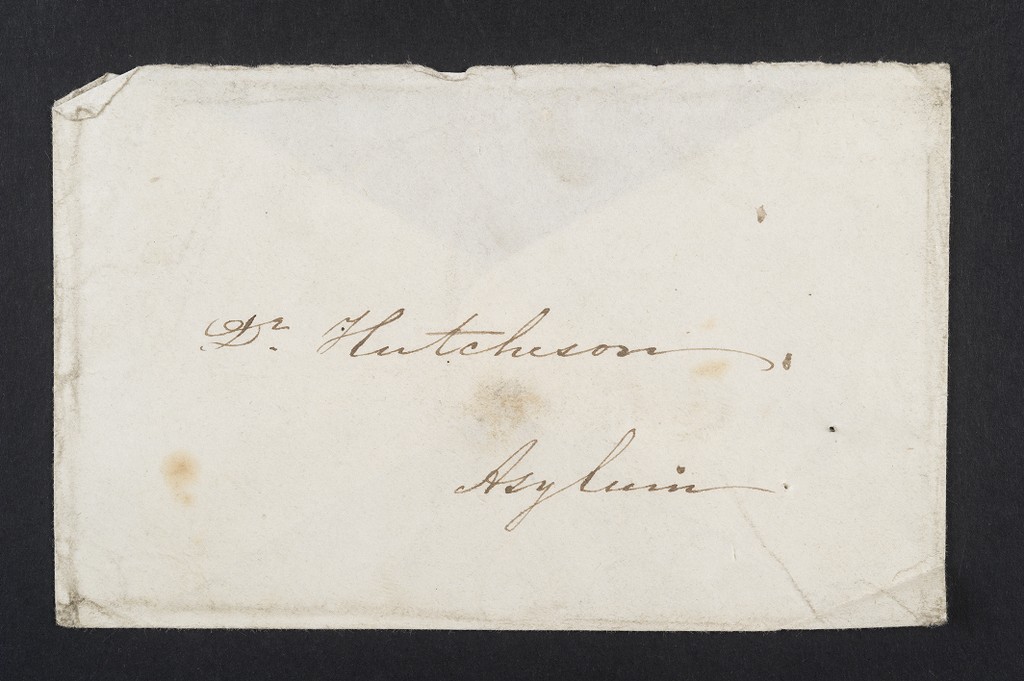 Dr. Hutcheson
Asylum